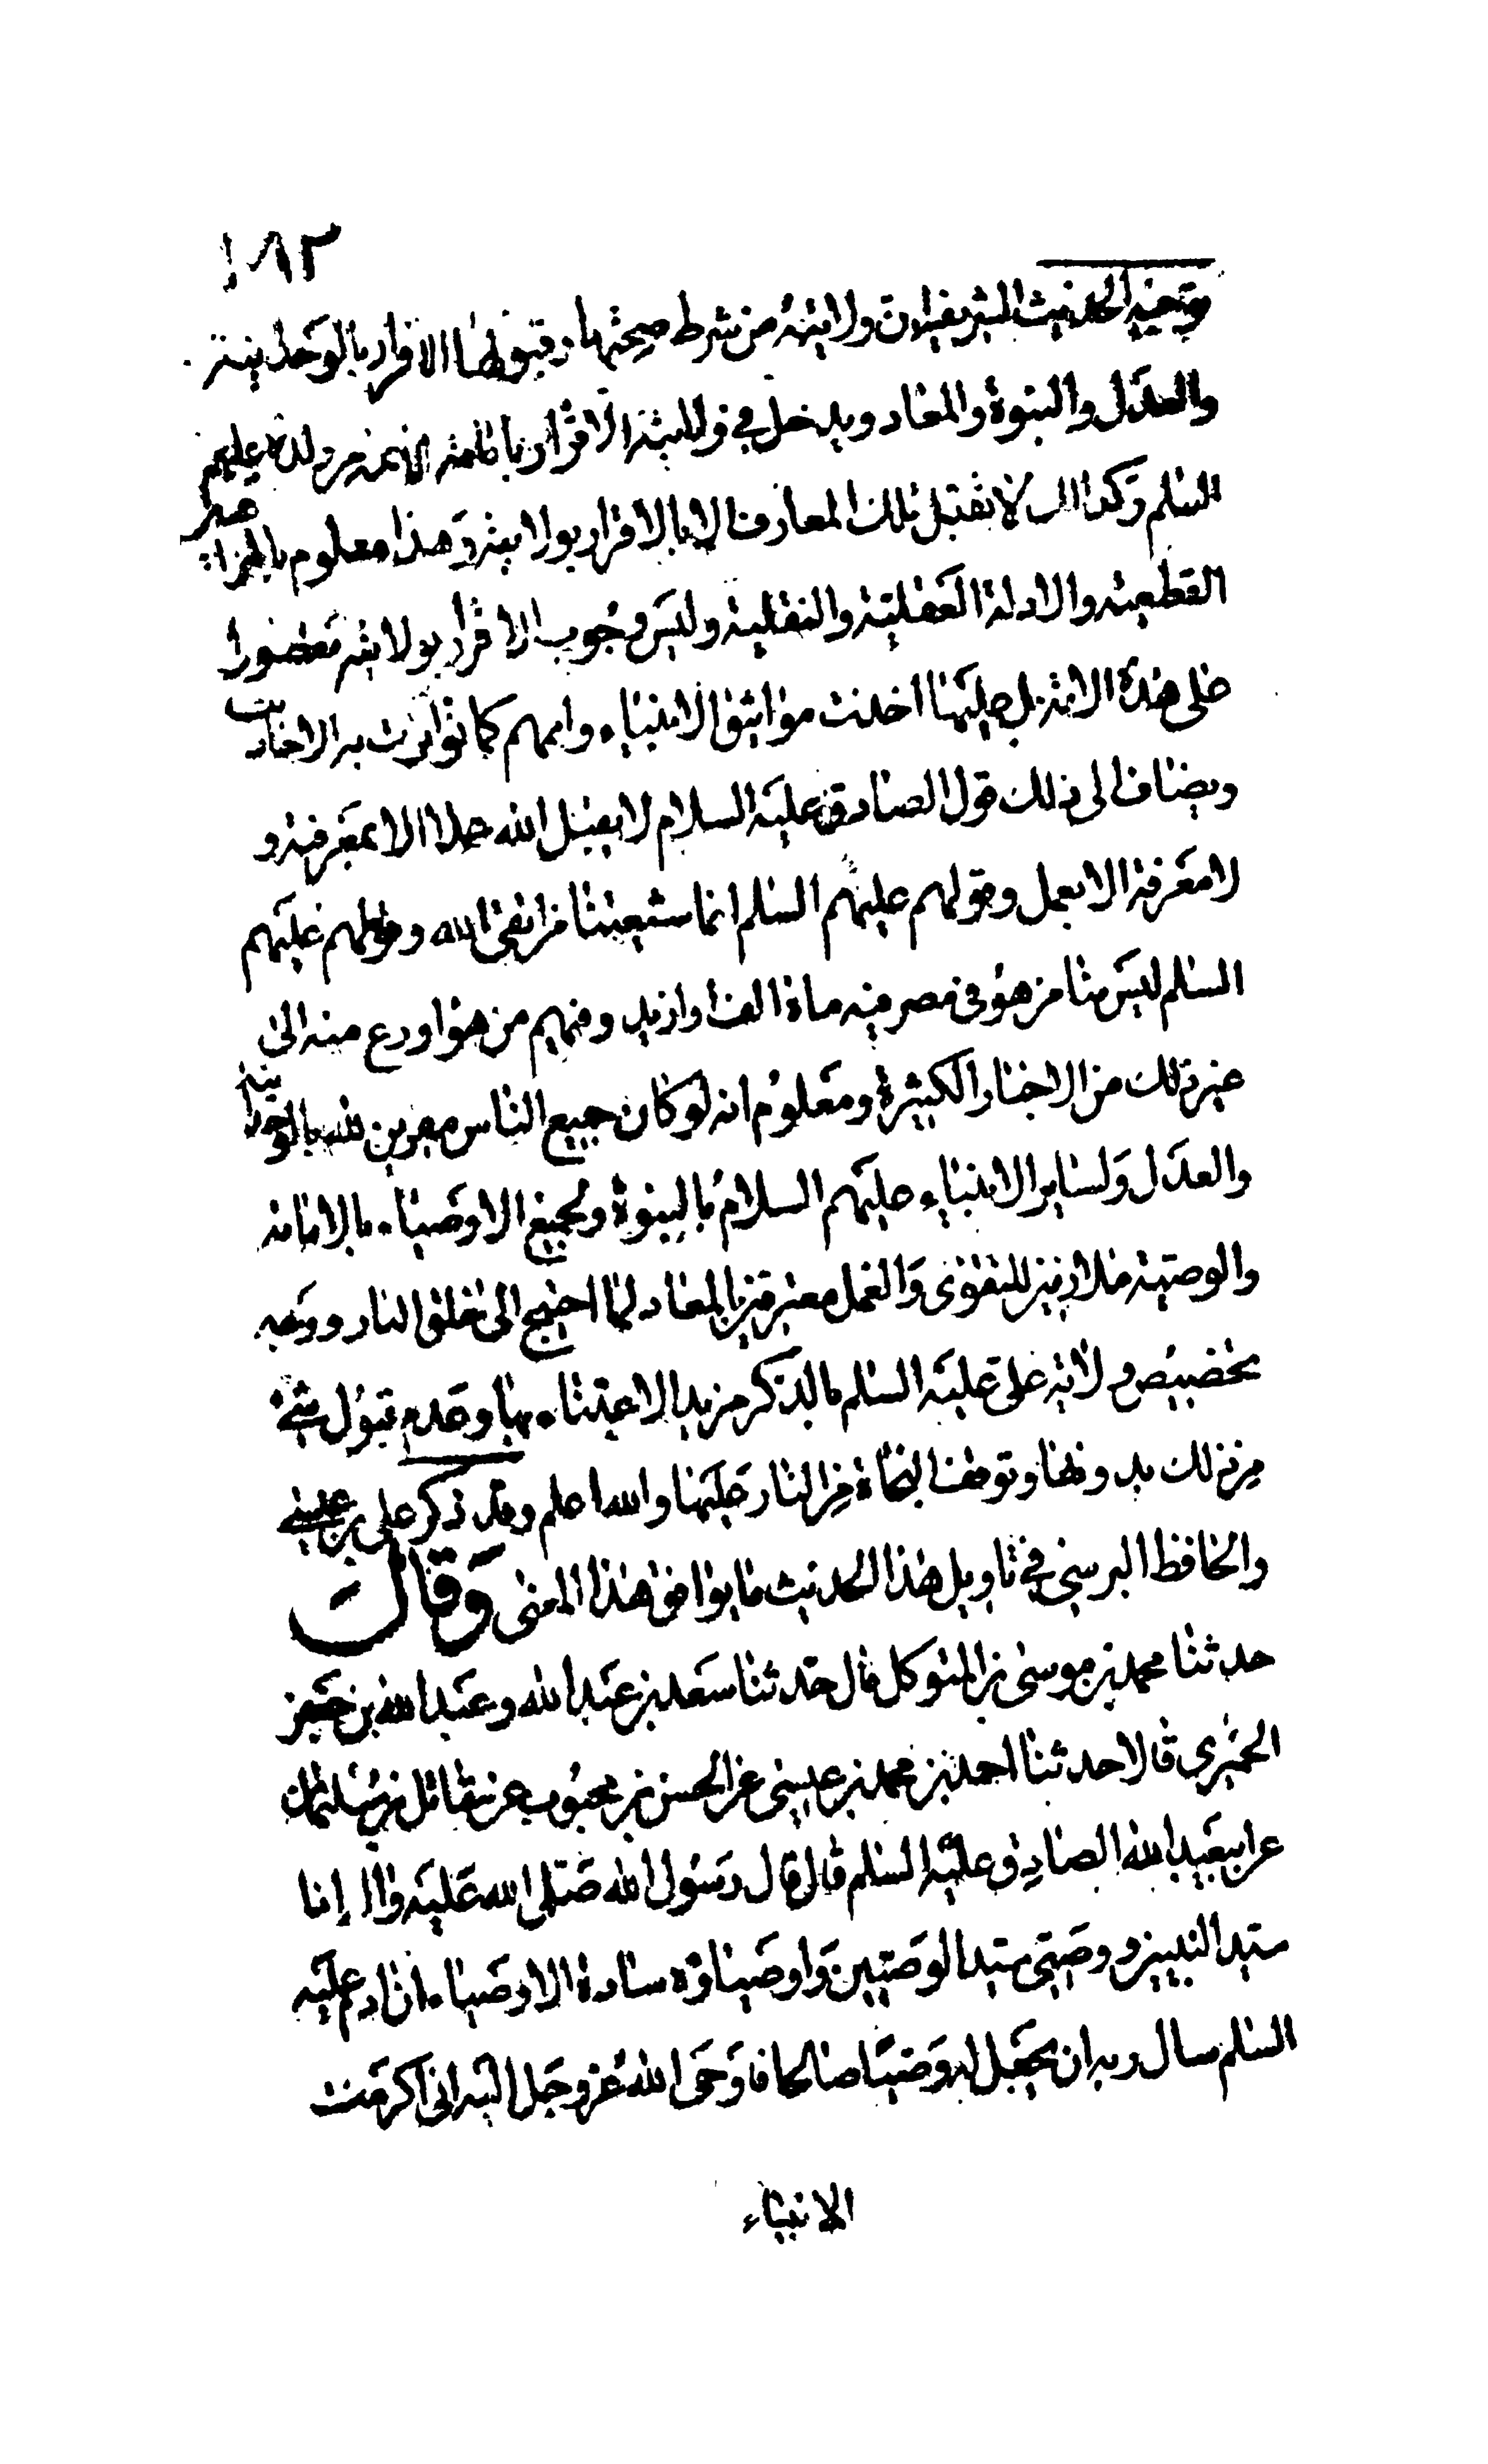 ١٨٣
وتوجيه الحديث الشريف لان ولايته من شرط صحتها وقبولها الاقرار بالوحدانية
والعدل والنبوة والمعاد ويدخل في ولايته الاقرار بامامة الائمة من ولده عليهم
السلم وكذا لا تقبل تلك المعارف الا بالاقرار بولايته وهذا معلوم بالبراهين
القطعية والادلة العقلية والنقلية وليس وجوب الاقرار بولايته مقصورا
على هذه الامة بل عليها اخذت مواثيق الانبياء واممهم كما تواترت به الاحاديث
ويضاف الى ذلك قول الصادق عليه السلام لا يقبل الله عملا الا بمعرفة و
لا معرفة الا بعمل وقولهم عليهم السلم انما شيعتنا من اتقى الله وقولهم عليهم
السلم ليس منا من هو في مصر فيه ماة الف او ازيد وفيهم من هو اورع منه الى
غير ذلك من الاخبار الكثيرة ومعلوم انه لو كان جميع الناس مقرين لله بالوحدانية
والعدل ولساير الانبياء عليهم السلام بالنبوة ولجميع الاوصياء بالامامة
والوصية ملازمين للتقوى والعمل معترفين بالمعاد لما احتيج الى خلق النار ووجه
تخصيص ولاية علي عليه السلم بالذكر مزيد الاعتناء بها وعدم قبول شيء
من ذلك بدونها وتوقف النجاة من النار عليها والله اعلم وقد ذكر علي بن عيسى
والحافظ البرسي في تاويل هذا الحديث ما يوافق هذا المعنى وقال
حدثنا محمد بن موسى بن المتوكل قال حدثنا سعد بن عبد الله وعبد الله بن جعفر
الحميري قالا حدثنا احمد بن محمد بن عيسى عن الحسن بن محبوب عن مقاتل بن سليمان
عن ابي عبد الله الصادق عليه السلم قال قال رسول الله صلى الله عليه واله انا
سيد النبيين ووصيي سيد الوصيين واوصياؤه سادة الاوصياء ان ادم عليه
السلم سال ربه ان يجعل له وصيا صالحا فاوحى الله عز وجل اليه اني اكرمت
الانبياء